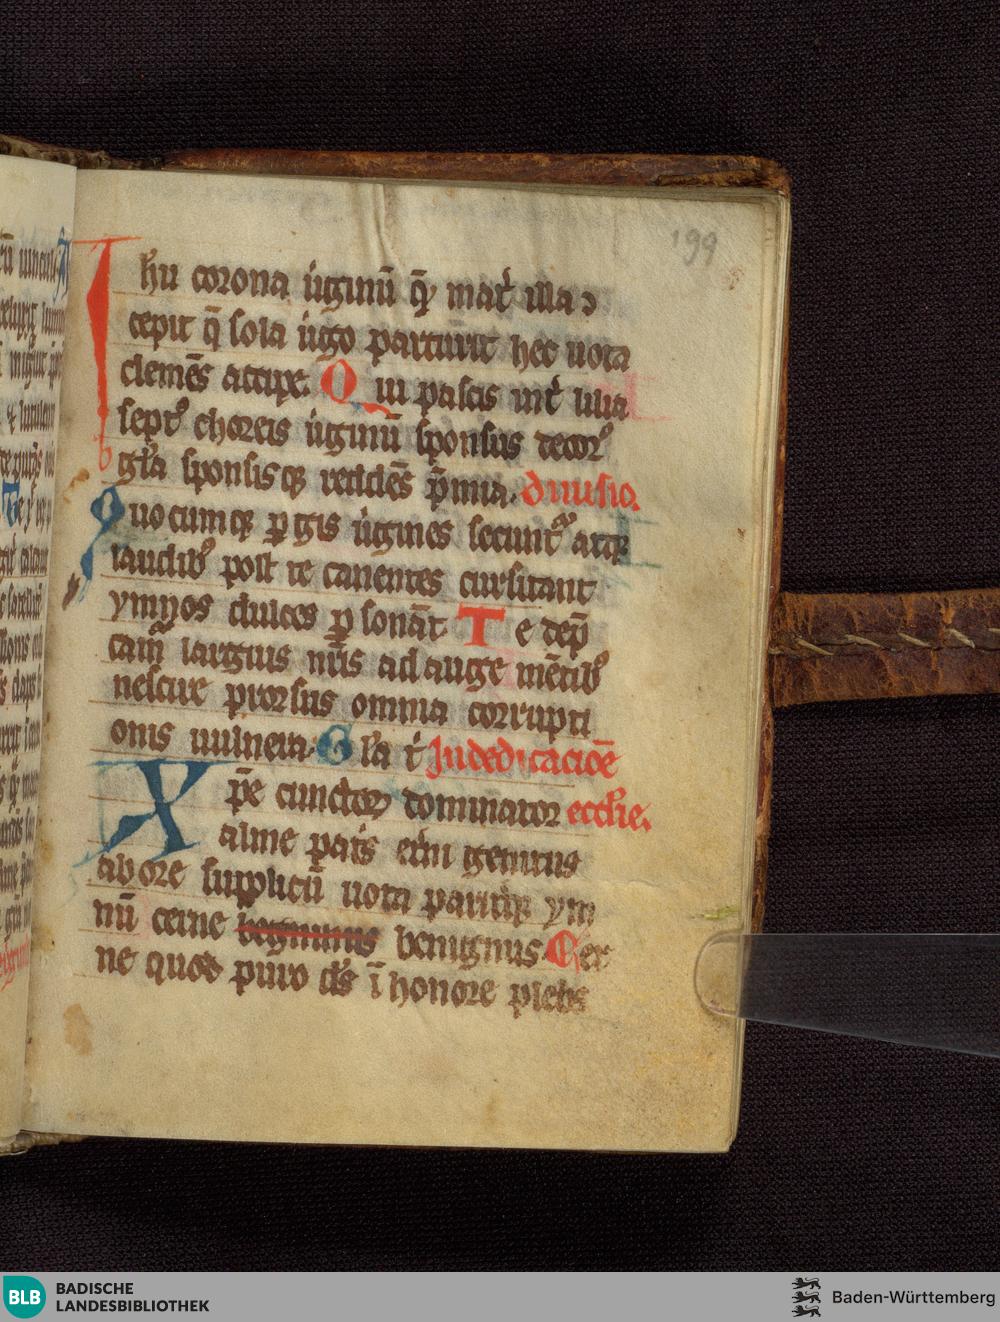 199
Ihu corona ůginū q̄ꝫ mat̉ illa ɔ
cepit q̄ sola ůgo parturit hec uota
clemēs accipe. Qui pascis int̉ lilia
sept᷒ choreis ůginū sponsus decor᷒
gl̄a sponsisqꝫ reddēs p̄mia. diuisio.
Quocumqꝫ ꝑgis ůgines secunt᷒ atqꝫ
laudibꝫ post te canentes cursitant
ympnos dulces ꝑsonāt. Te dep̄
cam̄ largius nr̄is adauge mētibꝫ
nescire prorsus omnia corrupti
onis uulnera. Gl̄a t̉ In dedicacōe
Xp̄e cunctoꝝ dominator eccl̄ie.
alme pat̉s et̉ni genitus
ab ore supplicū uota parit̉qꝫ ym
nū cerne begninus benignus. Cer
ne quod puro ds̄ ī honore plebs
BLB BADISCHE
LANDESBIBLIOTHEK
Baden-Württemberg